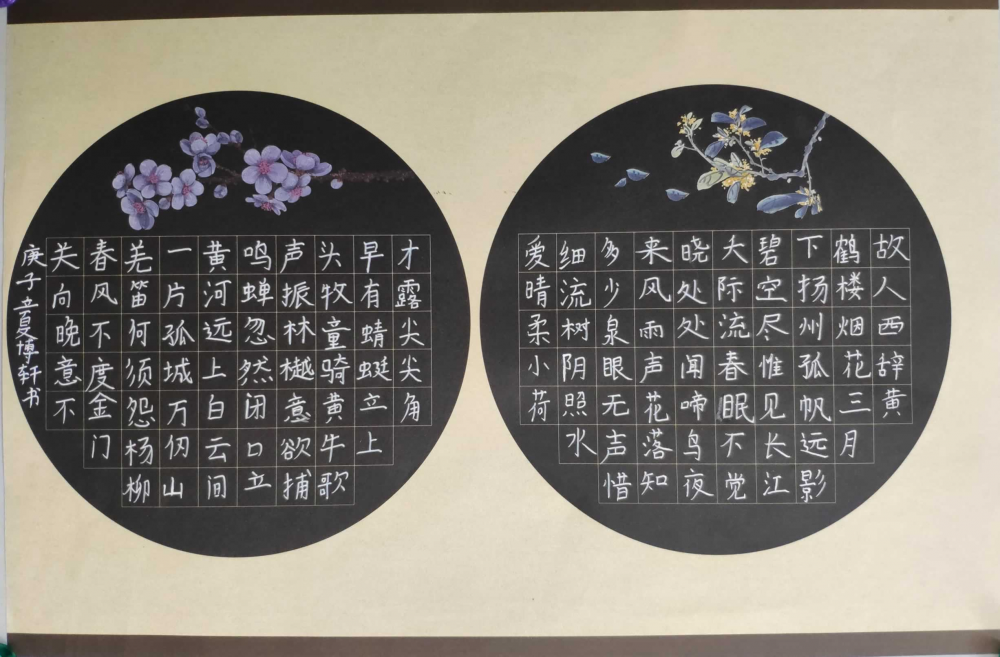 故人西辞黄
鹤楼烟花三月
下扬州孤帆远影
碧空尽惟见长江
天际流春眠不觉
晓处处闻啼鸟夜
来风雨声花落知
多少泉眼无声惜
细流树阴照水
爱晴柔小荷
才露尖尖角
早有蜻蜓立上
头牧童骑黄牛歌
声振林樾意欲捕
鸣蝉忽然闭口立
黄河远上白云间
一片孤城万仞山
羌笛何须怨杨柳
春风不度金门
关向晚意不
庚子立夏博轩书